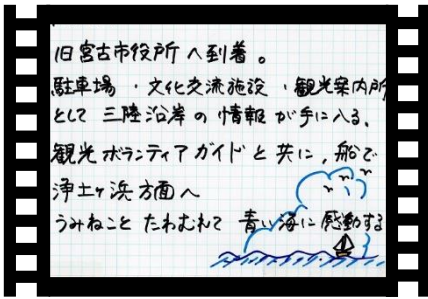 旧宮古市役所へ到着。
駐車場・文化交流施設・観光案内所
として三陸沿岸の情報が手に入る。
観光ボランティアガイドと共に、船で
浄土ヶ浜方面へ
うみねことたわむれて青い海に感動する